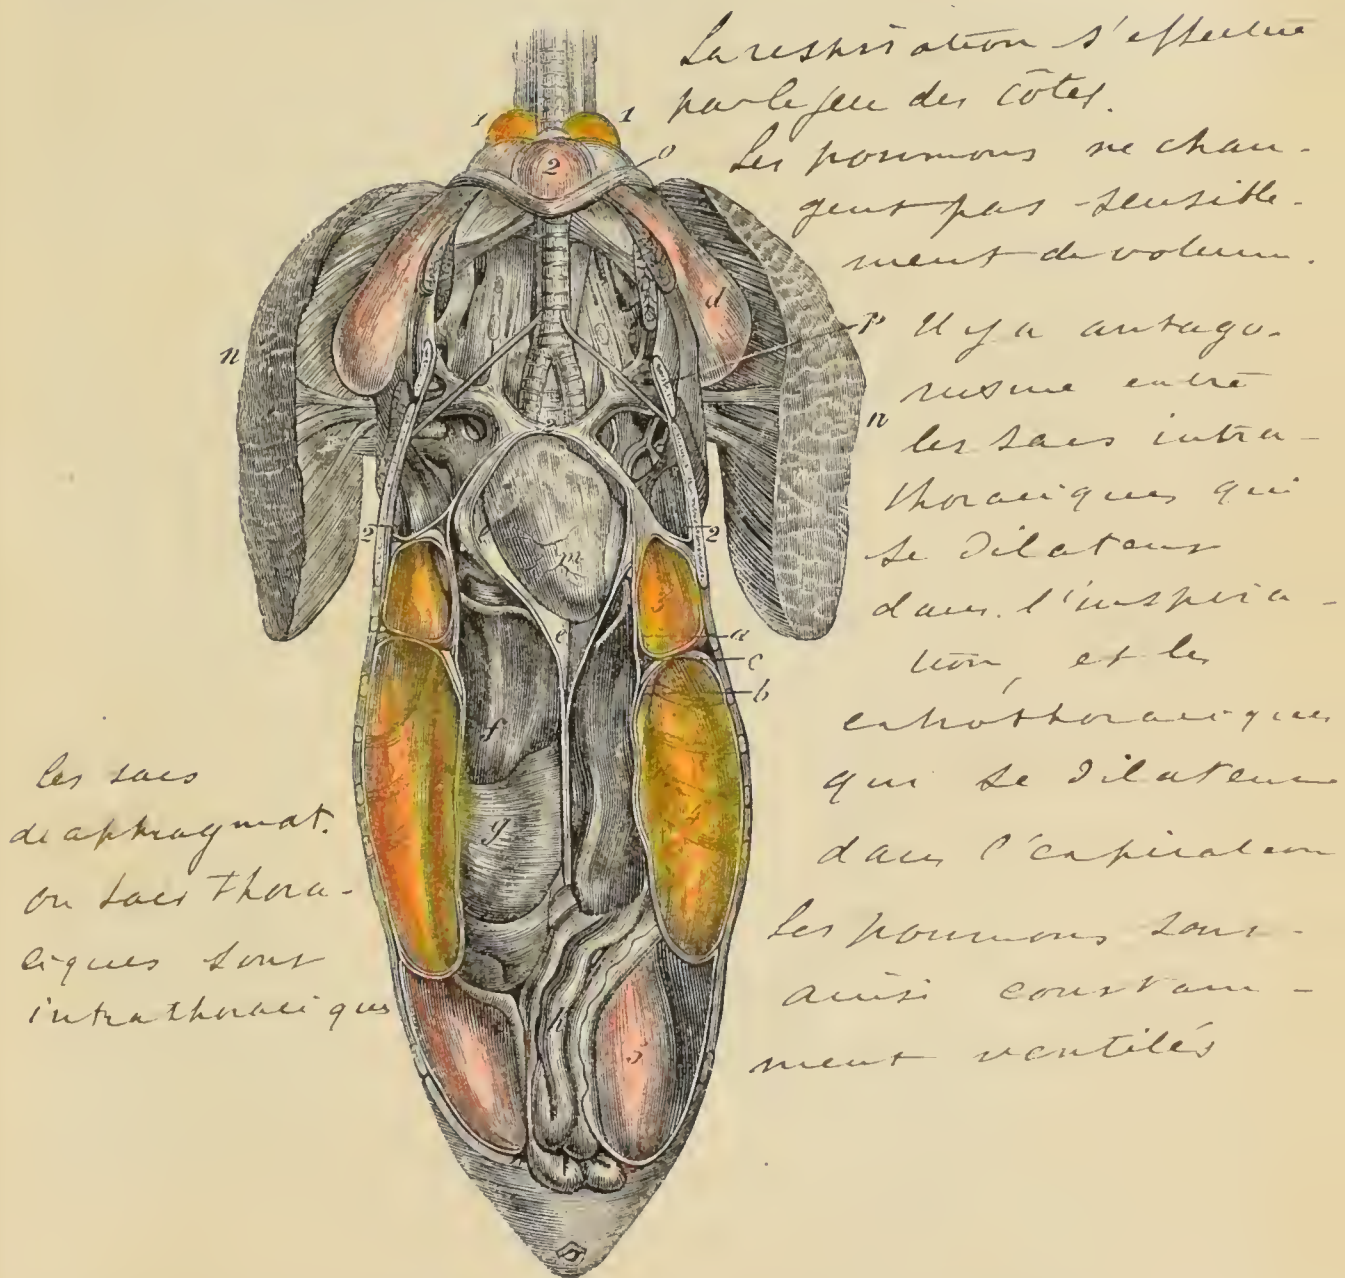 La respiration s'effectue
par le jeu des côtes.
Les poumons ne chan-
gent pas sensible-
ment de volume.
Il y a antago-
nisme entre
les sacs intra-
thoraciques qui
se dilatent
dans l'inspira-
tion, et les
extrathoraciques
qui se dilatent
dans l'expiration
Les poumons sont
ainsi constam-
ment ventilés
les sacs
diaphragmat.
ou sacs thora-
ciques sont
intrathoraciques
1 1
2 o
d
p
n n
2
2 2
l m
3
e a
c
b
f
4
g
h 5